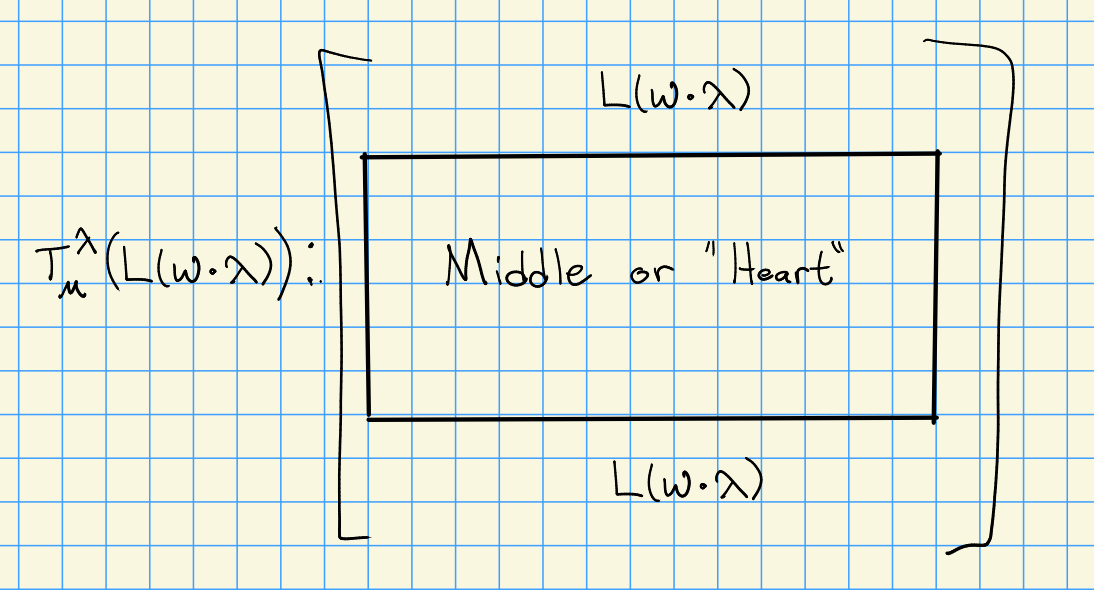 L(w·λ)
T_μ^λ(L(w·λ)):
Middle or "Heart"
L(w·λ)